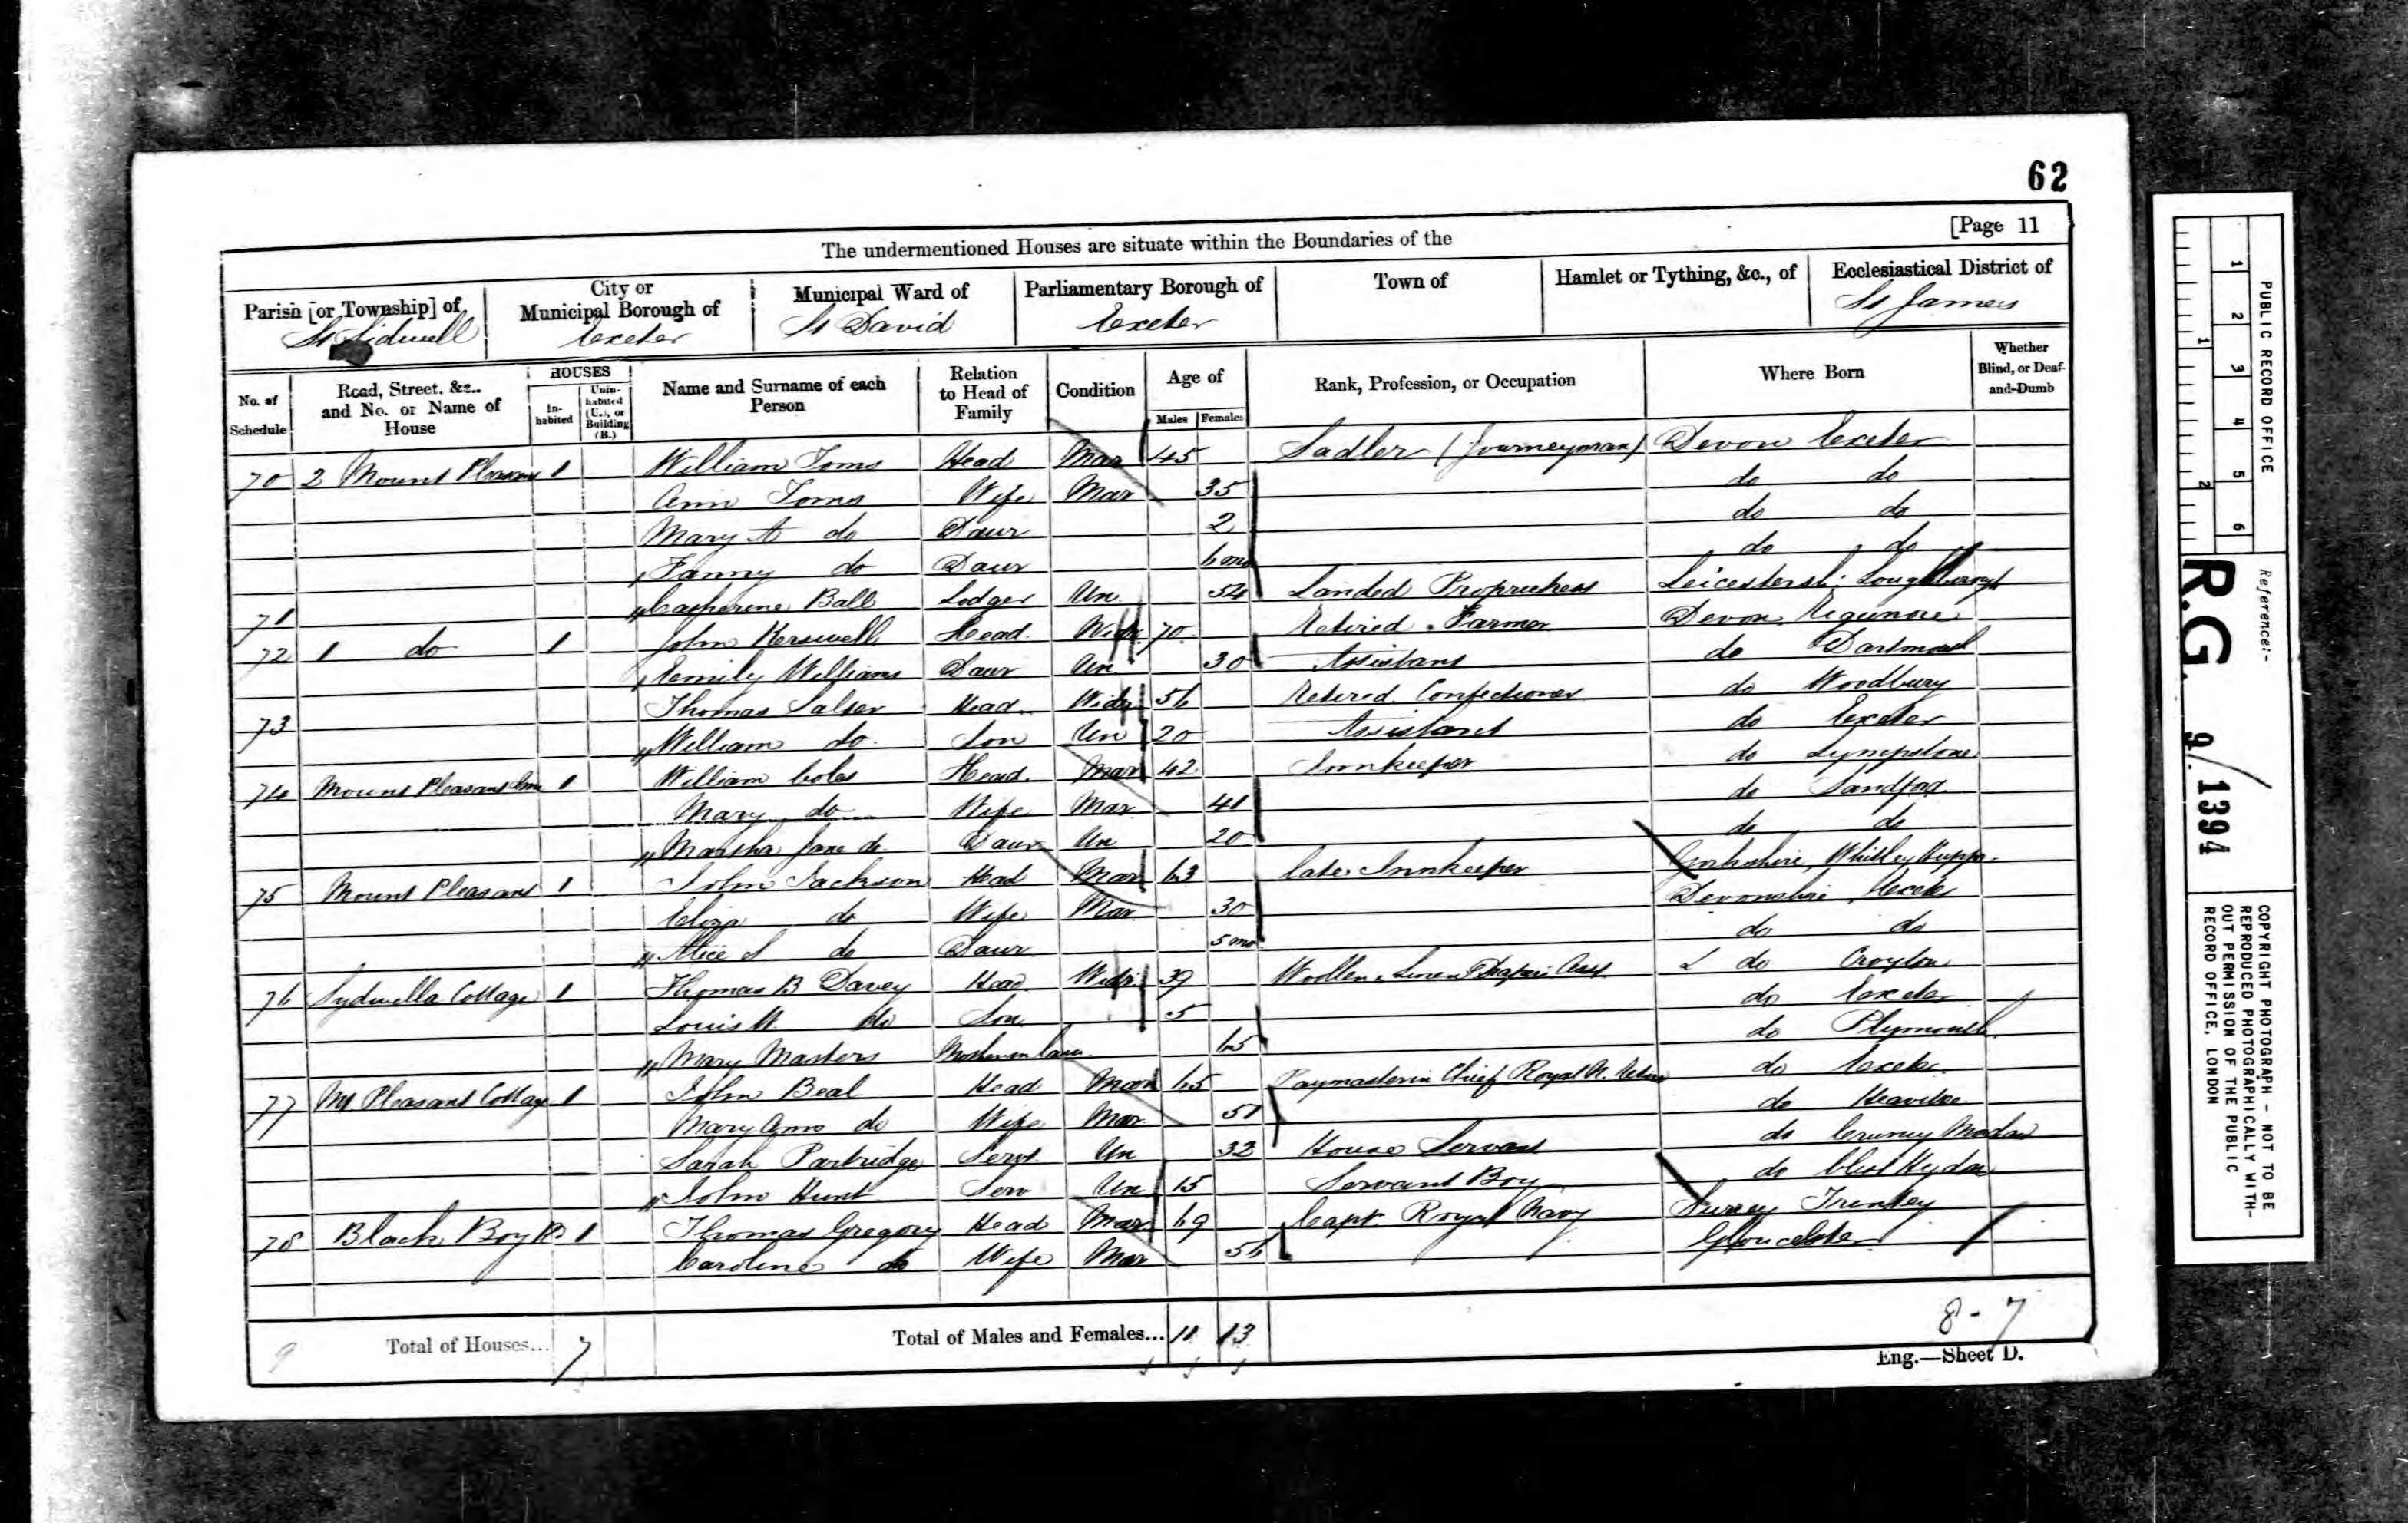 62
[Page 11
The undermentioned Houses are situate within the Boundaries of the
Parish [or Township] of St Sidwell
City or Municipal Borough of Exeter
Municipal Ward of St David
Parliamentary Borough of Exeter
Town of
Hamlet or Tything, &c., of
Ecclesiastical District of St James
No. of Schedule
Road, Street, &c., and No. or Name of House
HOUSES
In-habited
Unin-habited (U.), or Building (B.)
Name and Surname of each Person
Relation to Head of Family
Condition
Age of
Males
Females
Rank, Profession, or Occupation
Where Born
Whether Blind, or Deaf-and-Dumb
70 2 Mount Pleasant 1 William Toms Head Mar 45 Sadler (Journeyman) Devon Exeter
Ann Toms Wife Mar 35 do do
Mary A do Daur 2 do do
Fanny do Daur 6 mo do do
71 Catherine Ball Lodger Un 54 Landed Proprietress Leicestersh: Loughborough
72 1 do 1 John Kerswell Head Widr 70 Retired Farmer Devon
Emily Williams Daur Un 30 Assistant do Dartmouth
73 Thomas Salter Head Widr 56 Retired Confectioner do Woodbury
William do Son Un 20 Assistant do Exeter
74 Mount Pleasant Inn 1 William Coles Head Mar 42 Innkeeper do Lympstone
Mary do Wife Mar 41 do Sandford
Martha Jane do Daur Un 20 do do
75 Mount Pleasant 1 John Jackson Head Mar 63 late Innkeeper Yorkshire, Whitley
Eliza do Wife Mar 30 Devonshire Exeter
Alice do Daur 5 mo do do
76 Sydwella Cottage 1 Thomas B Davey Head Widr 39 Woollen & Linen Draper's do
Louis W. do Son 5 do Exeter
Mary Masters Mother in law 65 do Plymouth
77 Mt Pleasant Cottage 1 John Beal Head Mar 65 Paymaster in Chief Royal N. do Exeter
Mary Ann do Wife Mar 51 do Heavitree
Sarah Partridge Servt Un 32 House Servant do
John Hunt Serv Un 15 Servant Boy do Clist Hydon
78 Black Boy Rd 1 Thomas Gregory Head Mar 69 Capt Royal Navy Surrey
Caroline do Wife Mar 56 Gloucester
9 Total of Houses... 7 Total of Males and Females... 11 13
8 - 7
Eng.—Sheet D.
PUBLIC RECORD OFFICE
1 2 3 4 5 6
1 2
Reference:-
R.G. 9/1394
COPYRIGHT PHOTOGRAPH - NOT TO BE
REPRODUCED PHOTOGRAPHICALLY WITH-
OUT PERMISSION OF THE PUBLIC
RECORD OFFICE, LONDON